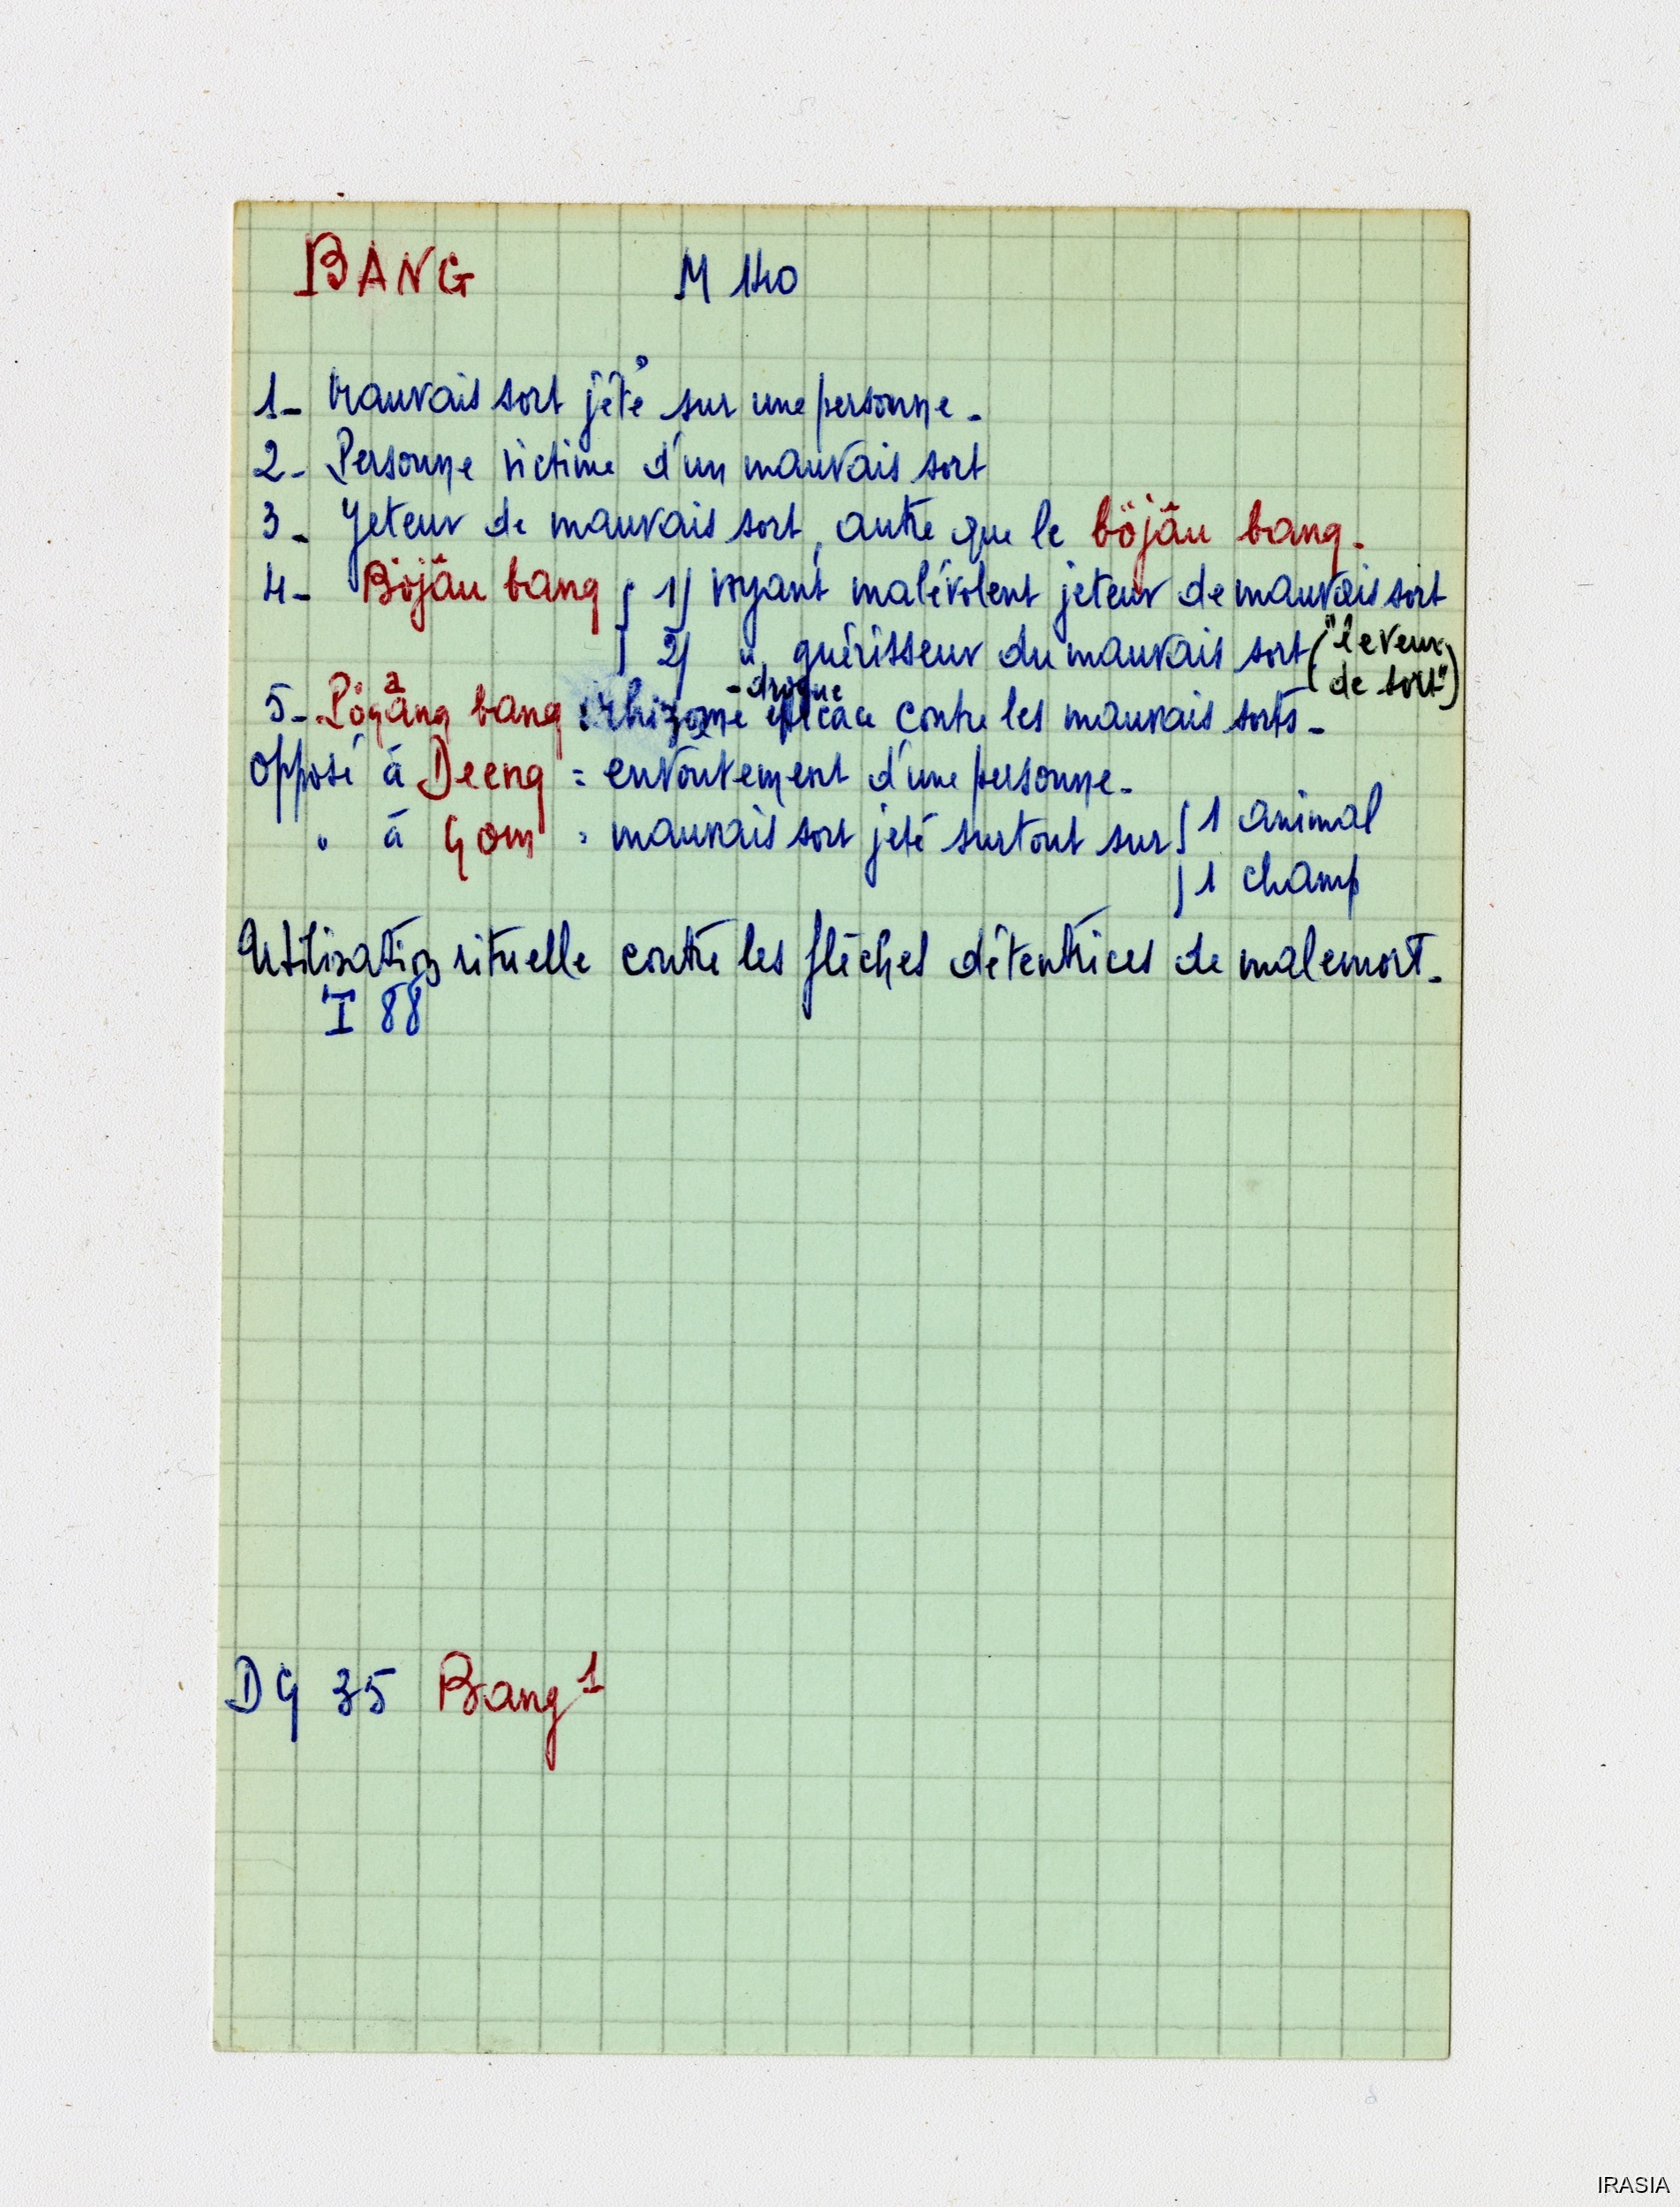 BANG M 140
1- Mauvais sort jeté sur une personne.
2- Personne victime d'un mauvais sort
3- Jeteur de mauvais sort, autre que le böjâu bang.
4- Böjâu bang { 1/ voyant malévolent jeteur de mauvais sort
2/ " guérisseur du mauvais sort ("leveur
de sort")
5- Pögâng bang : rhizome-drogue efficace contre les mauvais sorts-
Opposé à Deeng = envoutement d'une personne-
" à Gom = mauvais sort jeté surtout sur { 1 animal
1 champ
Utilisation rituelle contre les flèches détentrices de malemort-
I 88
DG 35 Bang 1
IRASIA